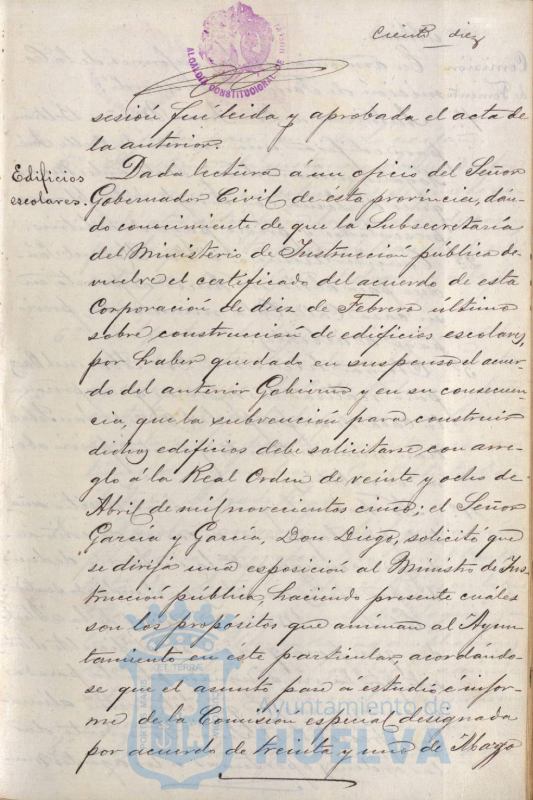 Ciento diez
ALCALDÍA CONSTITUCIONAL DE
sesión fué leida y aprobada el acta de
la anterior.
Edificios
escolares.
Dada lectura á un oficio del Señor
Gobernador Civil de ésta provincia, dán-
do conocimiento de que la Subsecretaría
del Ministerio de Instrucción pública de-
vuelve el certificado del acuerdo de esta
Corporación de diez de Febrero último
sobre construcción de edificios escolares,
por haber quedado en suspenso el acuer-
do del anterior Gobierno y en su consecuen-
cia, que la subvención para construir
dichos edificios debe solicitarse con arre-
glo á la Real Orden de veinte y ocho de
Abril de mil novecientos cinco; el Señor
García y García, Don Diego, solicitó que
se dirija una exposición al Ministro de Ins-
trucción pública, haciendo presente cuales
son los propósitos que animan al Ayun-
tamiento en éste particular, acordándo-
se que el asunto pase á estudio é infor-
me de la Comisión especial designada
por acuerdo de treinta y uno de Mayo
Ayuntamiento de
HUELVA